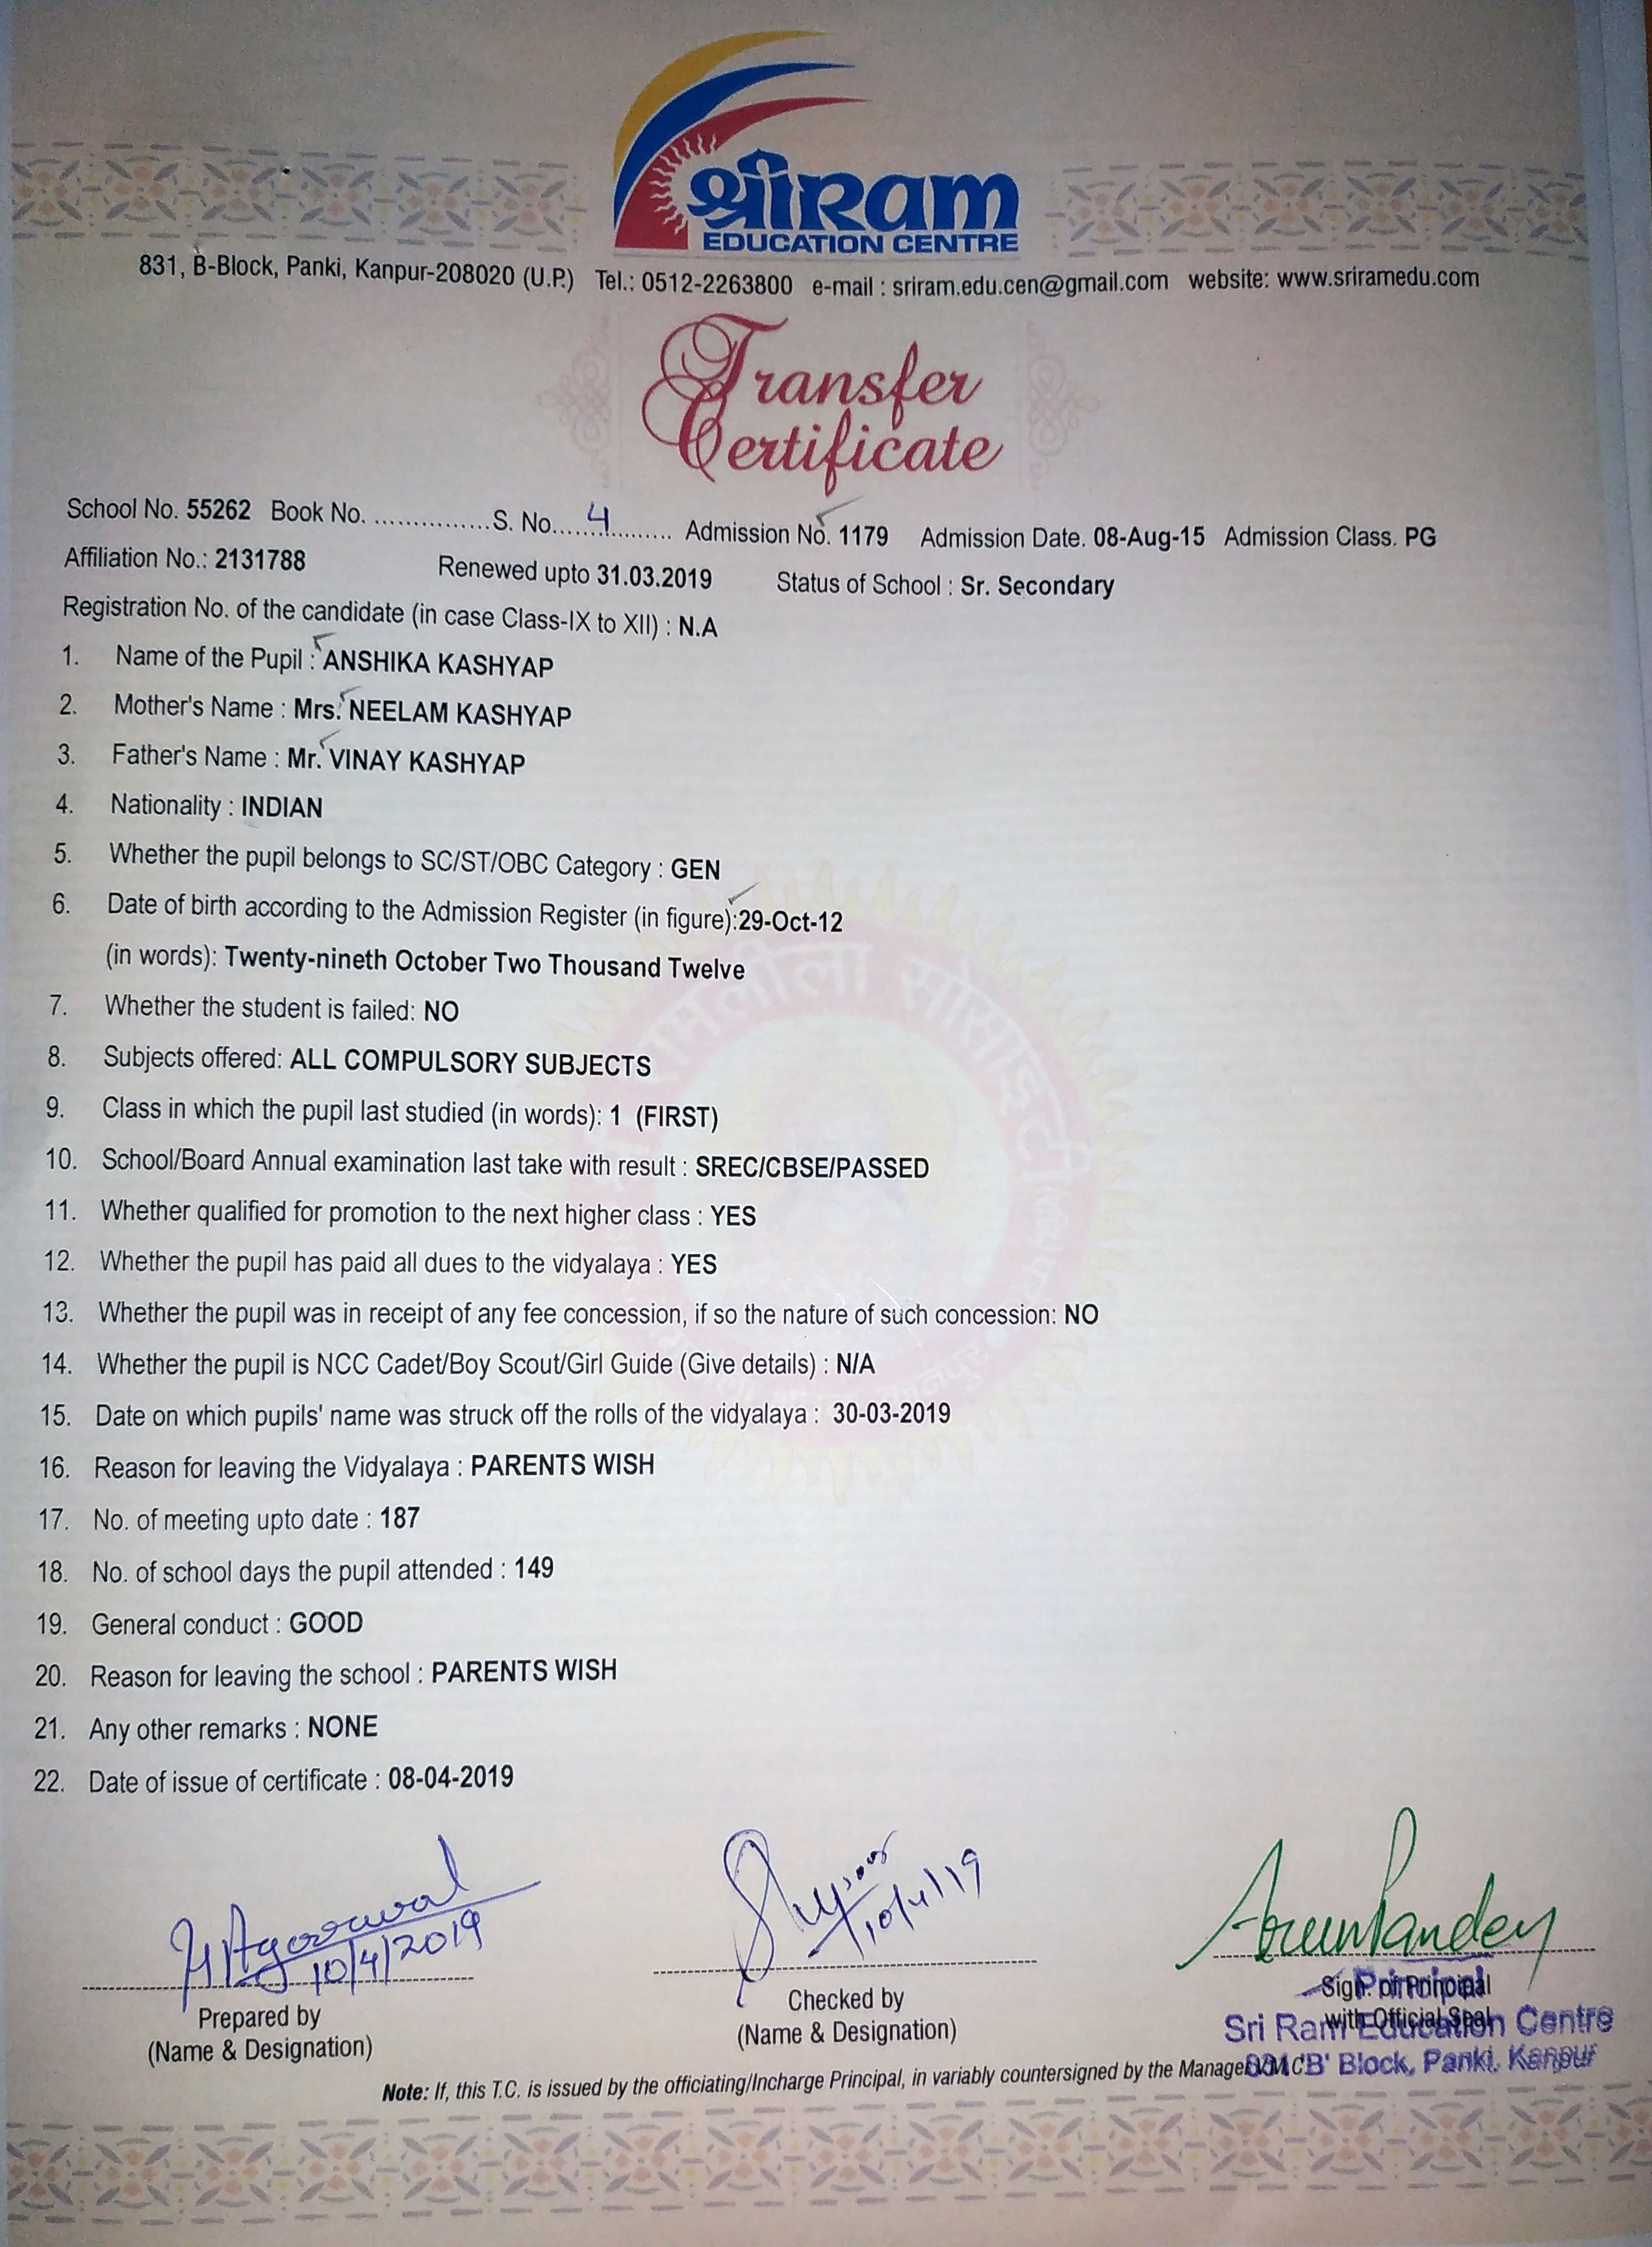 श्रीराम
EDUCATION CENTRE
831, B-Block, Panki, Kanpur-208020 (U.P.) Tel.: 0512-2263800 e-mail : sriram.edu.cen@gmail.com website: www.sriramedu.com
Transfer
Certificate
School No. 55262 Book No. ................S. No....4............ Admission No. 1179 Admission Date. 08-Aug-15 Admission Class. PG
Affiliation No.: 2131788 Renewed upto 31.03.2019 Status of School : Sr. Secondary
Registration No. of the candidate (in case Class-IX to XII) : N.A
1. Name of the Pupil : ANSHIKA KASHYAP
2. Mother's Name : Mrs. NEELAM KASHYAP
3. Father's Name : Mr. VINAY KASHYAP
4. Nationality : INDIAN
5. Whether the pupil belongs to SC/ST/OBC Category : GEN
6. Date of birth according to the Admission Register (in figure):29-Oct-12
(in words): Twenty-nineth October Two Thousand Twelve
7. Whether the student is failed: NO
8. Subjects offered: ALL COMPULSORY SUBJECTS
9. Class in which the pupil last studied (in words): 1 (FIRST)
10. School/Board Annual examination last take with result : SREC/CBSE/PASSED
11. Whether qualified for promotion to the next higher class : YES
12. Whether the pupil has paid all dues to the vidyalaya : YES
13. Whether the pupil was in receipt of any fee concession, if so the nature of such concession: NO
14. Whether the pupil is NCC Cadet/Boy Scout/Girl Guide (Give details) : N/A
15. Date on which pupils' name was struck off the rolls of the vidyalaya : 30-03-2019
16. Reason for leaving the Vidyalaya : PARENTS WISH
17. No. of meeting upto date : 187
18. No. of school days the pupil attended : 149
19. General conduct : GOOD
20. Reason for leaving the school : PARENTS WISH
21. Any other remarks : NONE
22. Date of issue of certificate : 08-04-2019
Agarwal
10/4/2019
10/4/19
Arun Pandey
Prepared by
(Name & Designation)
Checked by
(Name & Designation)
Sign. of Principal
with Official Seal
Principal
Sri Ram Education Centre
831 'B' Block, Panki, Kanpur
Note: If, this T.C. is issued by the officiating/Incharge Principal, in variably countersigned by the Manager V.M.C.